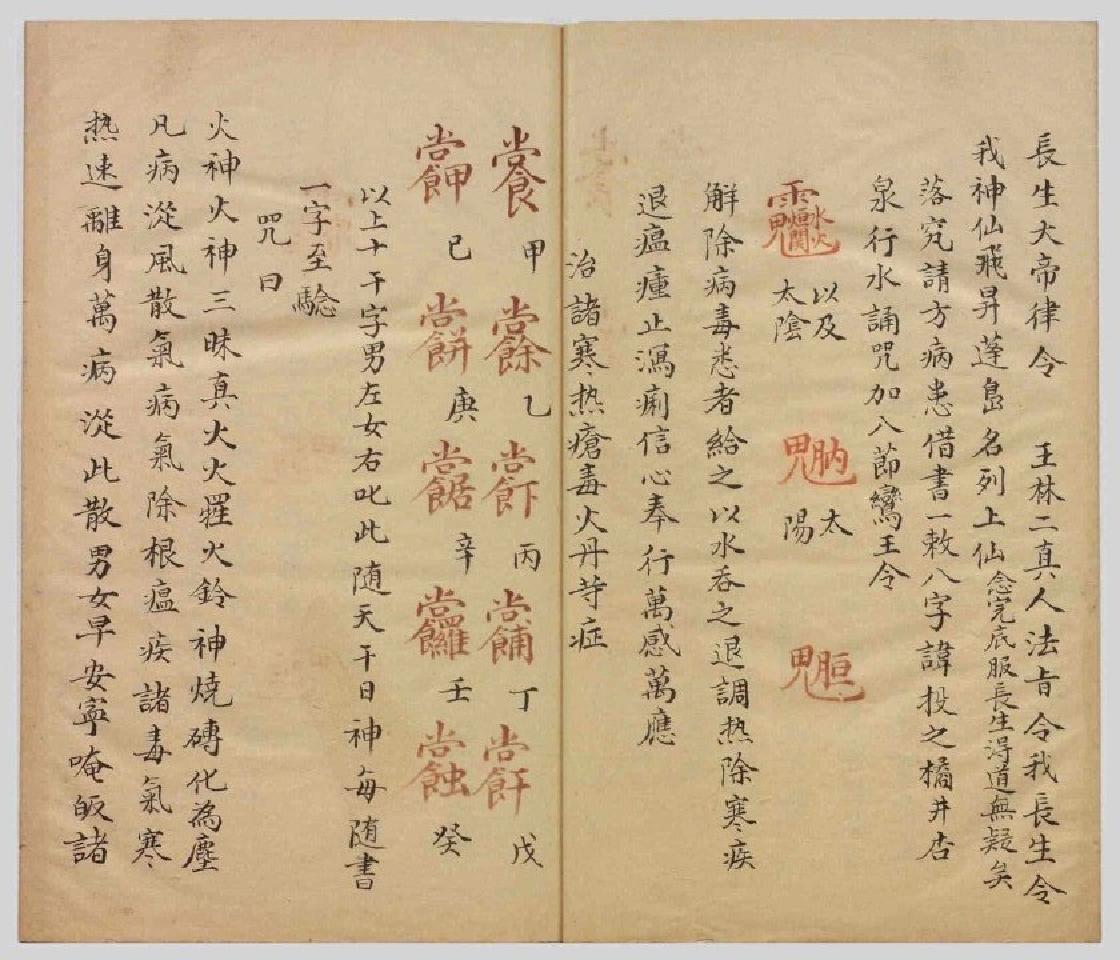 長生大帝律令　王林二真人法旨令我長生令
我神仙飛昇蓬島名列上仙念完底服長生淂道無疑矣
落究請方病患借書一敕八字諱投之橘井杏
泉行水誦咒加八節鸞王令
以及太陰　太陽
解除病毒悉者給之以水吞之退調热除寒疾
退瘟瘇止瀉痢信心奉行萬感萬應
治諸寒热瘡毒火丹等症
甲　乙　丙　丁　戊
己　庚　辛　壬　癸
以上十干字男左女右叱此随天干日神每随書
一字至驗
咒曰
火神火神三昧真火火羅火鈴神燒磚化為塵
凡病從風散氣病氣除根瘟疾諸毒氣寒
热速離身萬病從此散男女早安寧唵皈諸